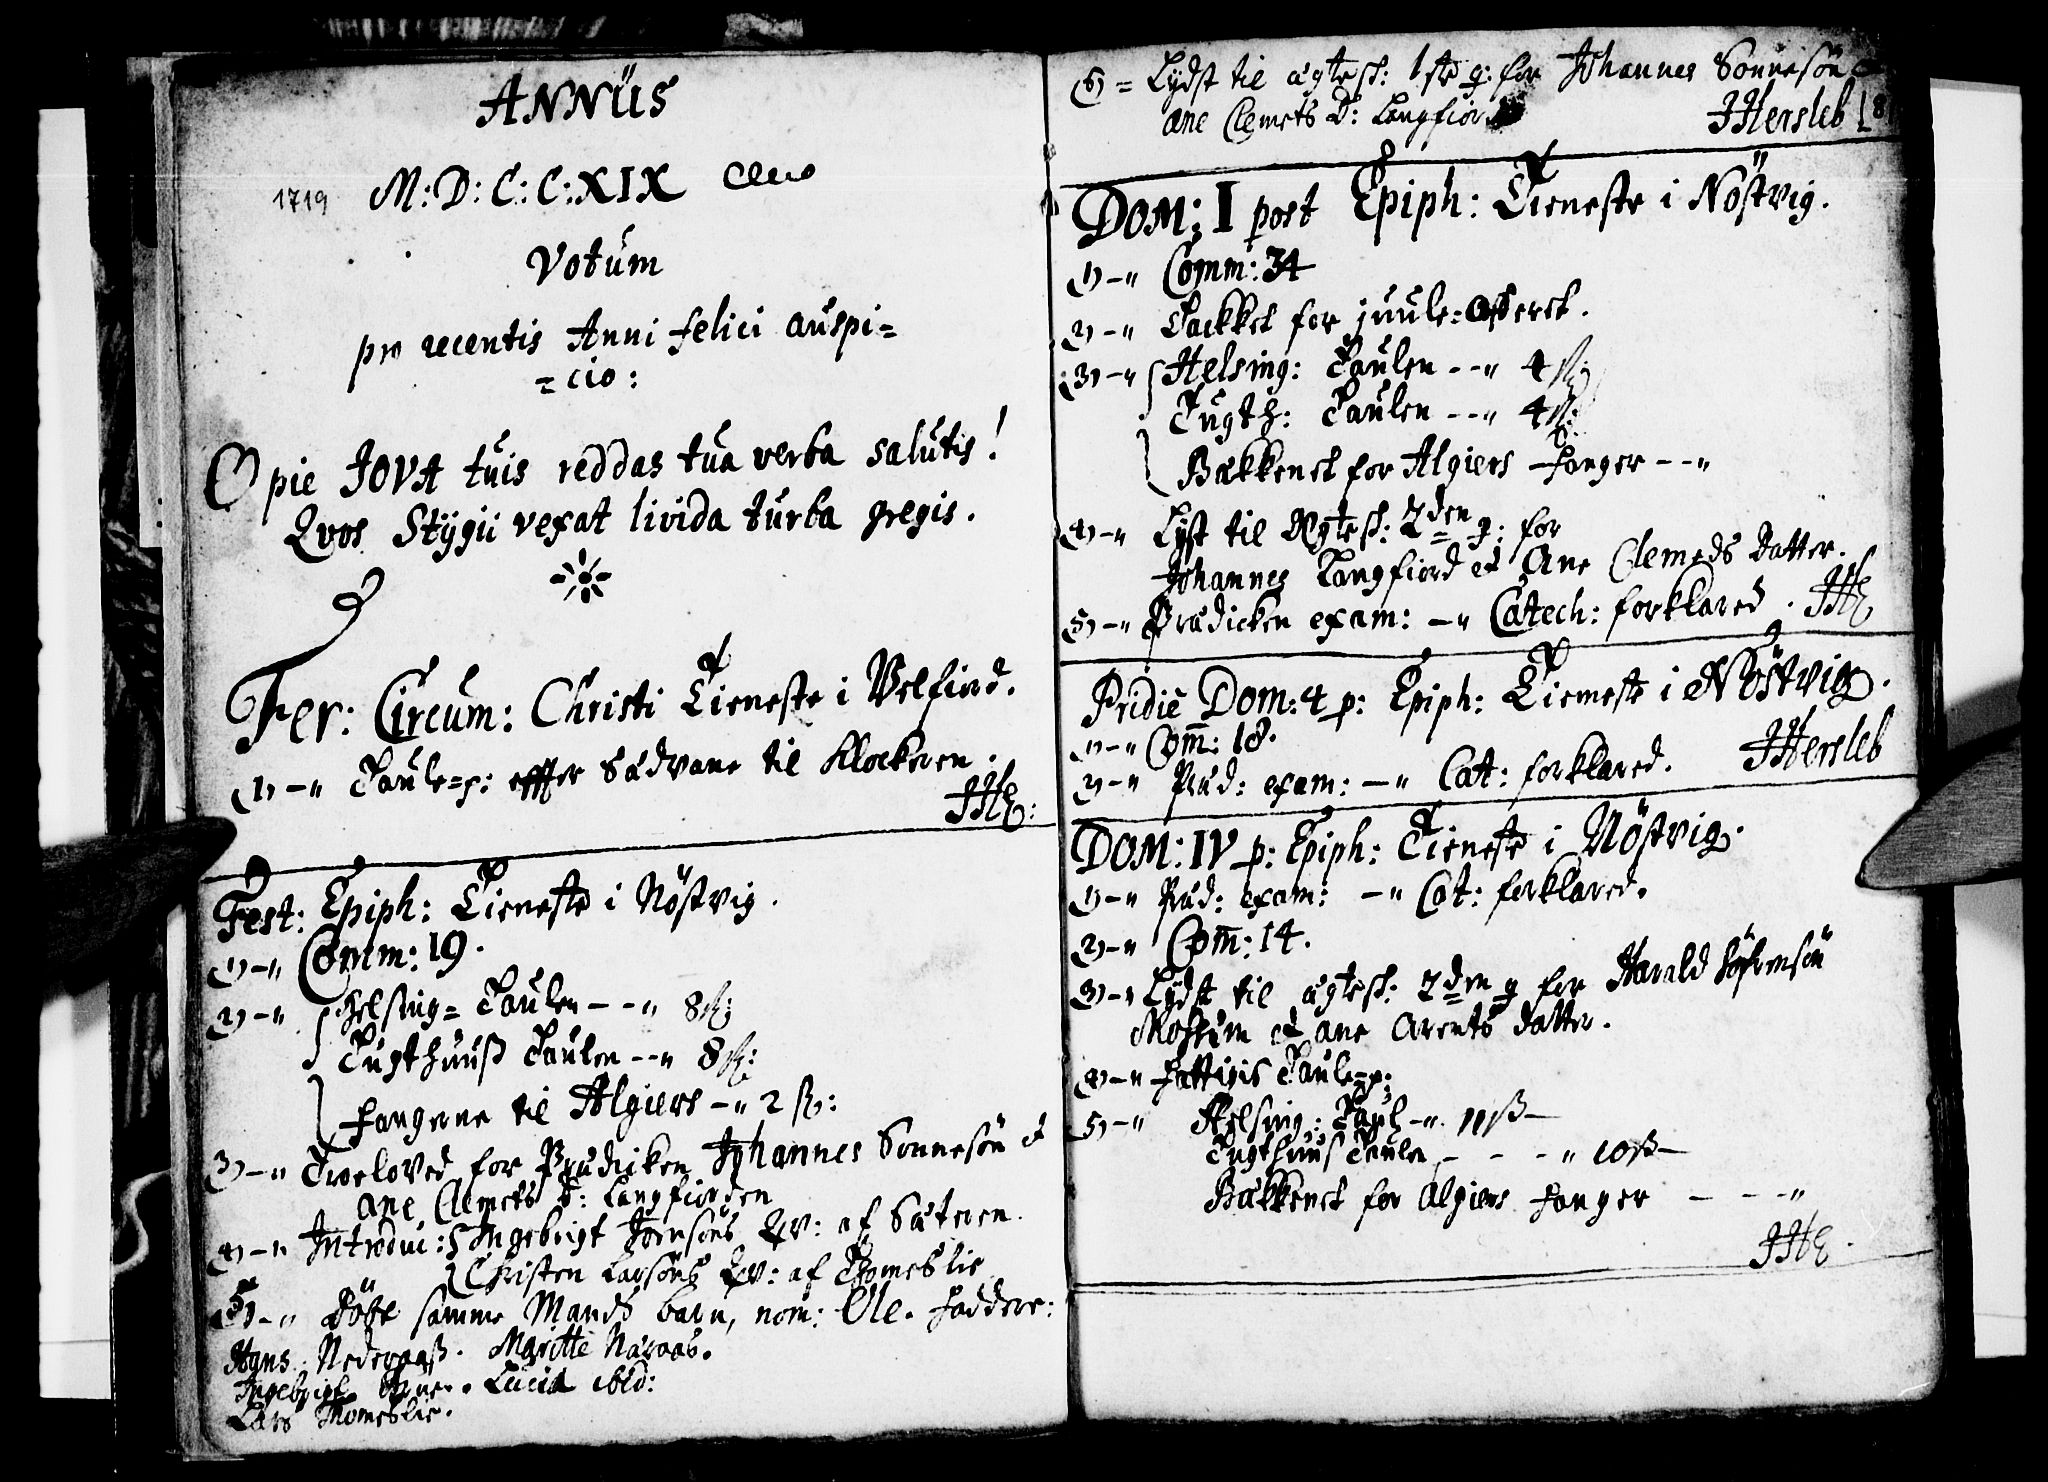 ANNÜS
1719 M:D:C:C:XIX
Votum
pro recentis Anni felici auspi=
=cio:
O pie JOVA tuis reddas tua verba salutis!
Qvos Stÿgii vexat livida turba gregis.
Fer: Circum: Christi Tieneste i Velfiord.
1) -" Taule=p: effter Sædvane til Klockeren.
JHL:
Fest: Epiph: Tieneste i Nöstvig.
1) -" Comm: 19.
2) -" Helsing= Taulen - - " 8 ß:
Tugthuuß Taulen - - " 8 ß:
Fangerne til Algiers - " 2 ß:
3) -" Troeloved for Prædicken Johannes Sonnesön et
Ane Clemets D: Langfiorden
4) -" Introduc: Ingebrigt Joensöns Qv: af Sæteren.
Christen Larsöns Qv: af Thomeslie
5) -" Döbt samme Mands barn, nom: Ole. Faddere:
Hans Nederaaß. Maritte Naraas.
Ingebrigt Lucia ibid:
Lars Thomeslie.
6) = Lydst til ægtesk: 1ste g: for Johannes Sonnesön et
Ane Clemets D: Langfiord
JHersleb [8
DOM: I post Epiph: Tieneste i Nöstvig.
1) -" Comm: 34
2) -" Tackket for juule=offeret.
3) -" Helsing: Taulen - - " 4 ß:
Tugth: Taulen - - " 4 ß:
Bækkenet for Algiers Fanger - - "
4) -" Lyst til Ægtesk: 2den g: for
Johannes Langfiord et Ane Clemeds Datter.
5) -" Prædicken exam: -" Catech: forklared. JHL
Pridie Dom: 4 p: Epiph: Tieneste i Nöstvig.
1) -" Com: 18.
2) -" Præd: exam: -" Cat: forklared. JHersleb
DOM: IV p: Epiph: Tieneste i Nöstvig.
1) -" Præd: exam: -" Cat: forklared.
2) -" Com: 14.
3) -" Lydst til ægtesk: 2den g for Harald Söfrensön
et Ane Arents datter.
4) -" Fattigis Taule=p:
5) -" Helsing: Taul -" 11 ß -
Tugthuus Taulen - - - " 10 ß -
Bækkenet for Algiers Fanger - - - "
JHL.